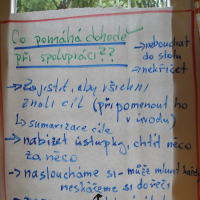 Co pomáhá dohodě
při spolupráci??
→ nebouchat
do stolu
→ nekřičet
→ Zajistit, aby všichni
znali cíl (připomenout ho
v úvodu)
↳ sumarizace cíle
→ nabízet ústupky, chtít něco
za něco
→ nasloucháme si - může mluvit každý
neskáčeme si do řeči